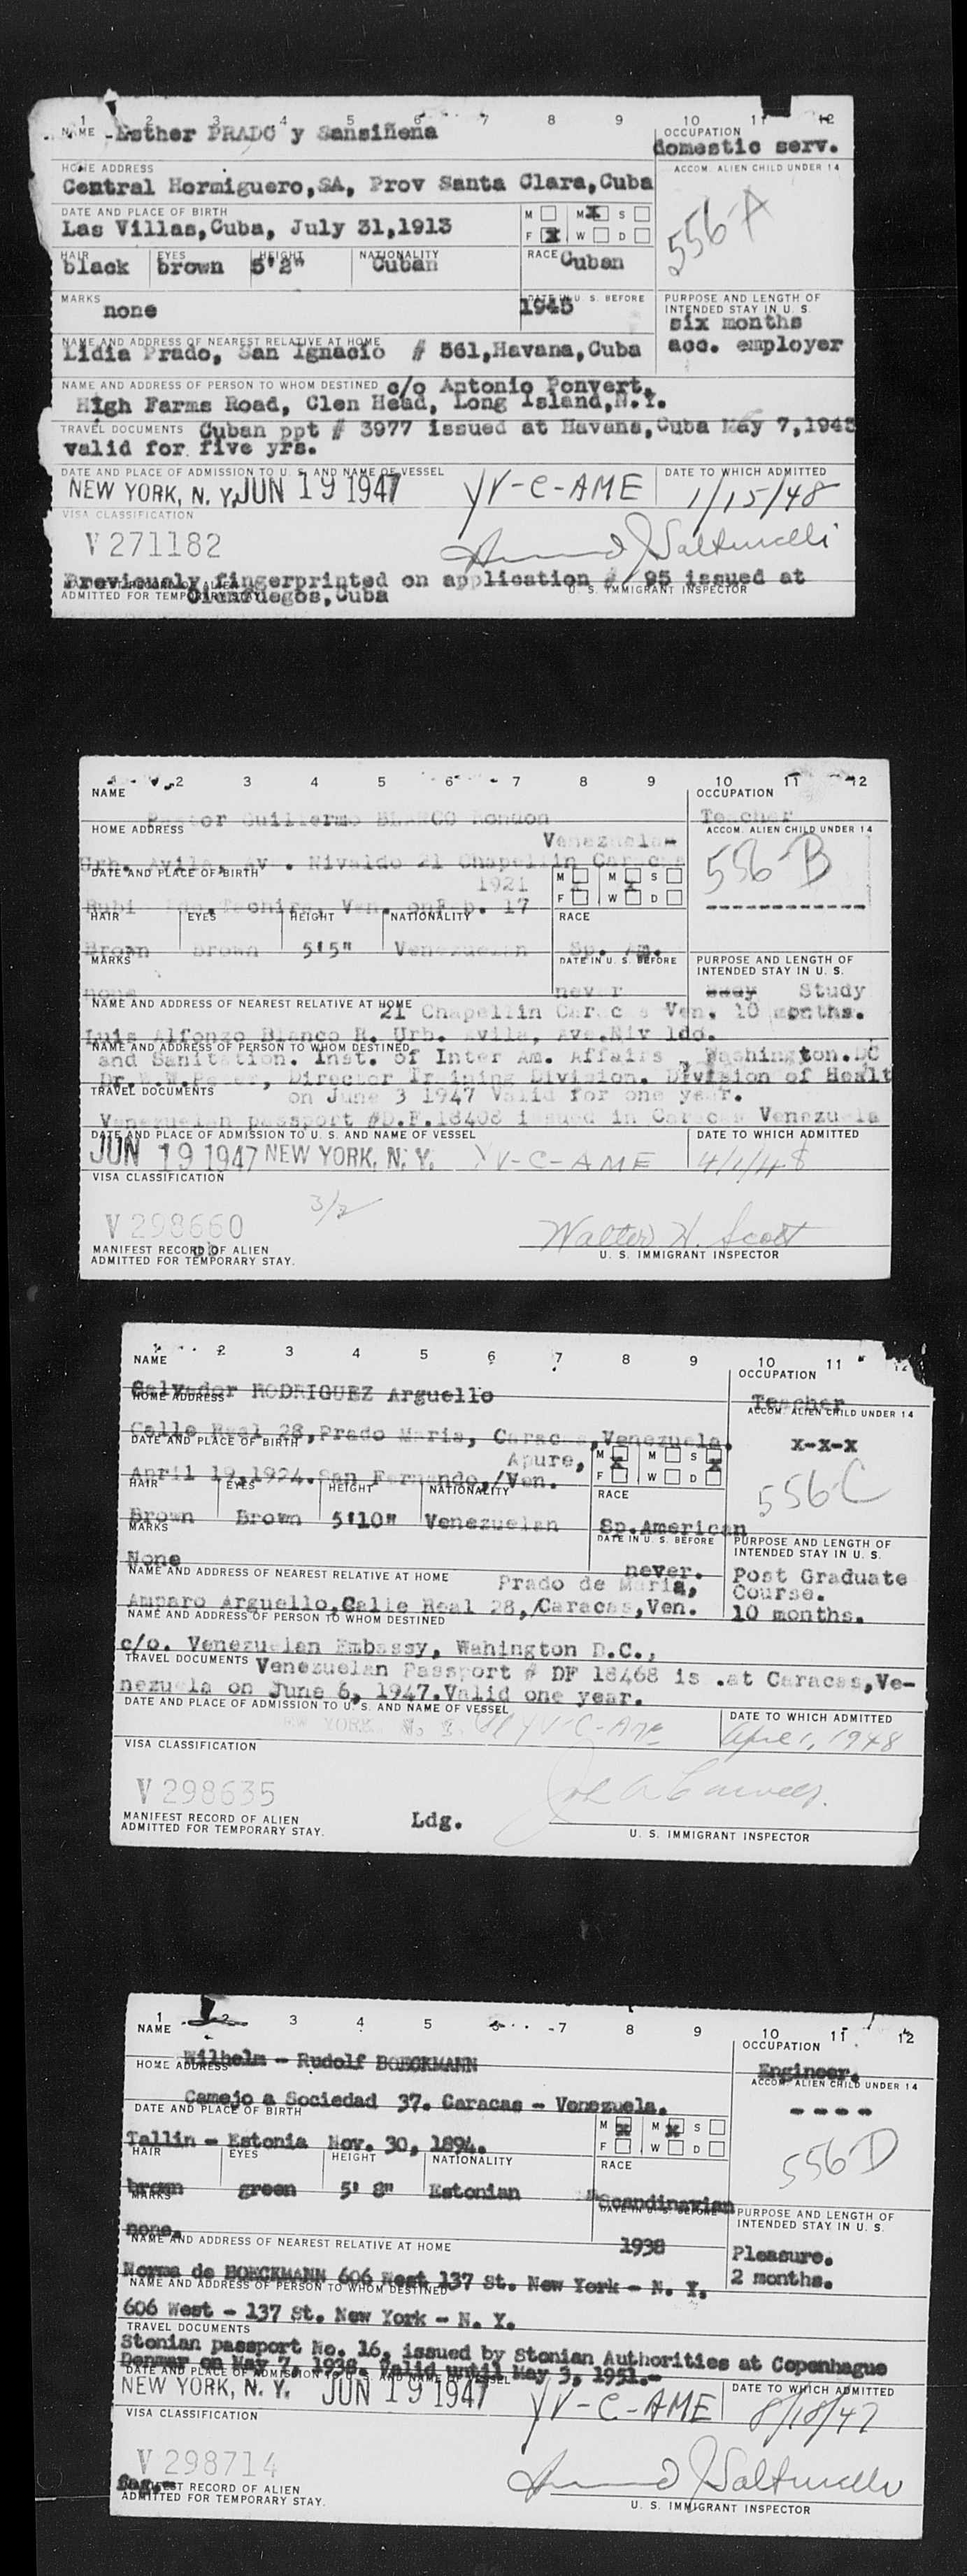 1 2 3 4 5 6 7 8 9 10 11 12
NAME Esther PRADO y Sansiñena
OCCUPATION
domestic serv.
HOME ADDRESS
Central Hormiguero,SA, Prov Santa Clara,Cuba
ACCOM. ALIEN CHILD UNDER 14
556-A
DATE AND PLACE OF BIRTH
Las Villas,Cuba, July 31,1913
M M X S
F X W D
HAIR EYES HEIGHT NATIONALITY RACE
black brown 5'2" Cuban Cuban
MARKS
none
DATE IN U. S. BEFORE
1945
PURPOSE AND LENGTH OF
INTENDED STAY IN U. S.
six months
acc. employer
NAME AND ADDRESS OF NEAREST RELATIVE AT HOME
Lidia Prado, San Ignacio # 561,Havana,Cuba
NAME AND ADDRESS OF PERSON TO WHOM DESTINED c/o Antonio Ponvert,
High Farms Road, Glen Head, Long Island,N.Y.
TRAVEL DOCUMENTS Cuban ppt # 3977 issued at Havana,Cuba May 7,1945
valid for five yrs.
DATE AND PLACE OF ADMISSION TO U. S. AND NAME OF VESSEL
DATE TO WHICH ADMITTED
NEW YORK, N. Y. JUN 19 1947 YV-C-AME 1/15/48
VISA CLASSIFICATION
V 271182
Previously fingerprinted on application # 95 issued at
Cienfuegos,Cuba
ADMITTED FOR TEMPORARY STAY
U. S. IMMIGRANT INSPECTOR
2 3 4 5 6 7 8 9 10 11 12
NAME OCCUPATION
Pastor Guillermo BLANCO Rondon Teacher
HOME ADDRESS ACCOM. ALIEN CHILD UNDER 14
Venezuela-
Urb. Avila, Av. Nivaldo 21 Chapellin Caracas
556-B
DATE AND PLACE OF BIRTH
1921
M M X S
F W D
Rubio Edo.Tachira, Ven. on Feb. 17
HAIR EYES HEIGHT NATIONALITY RACE
Brown brown 5'5" Venezuelan Sp. Am.
MARKS DATE IN U. S. BEFORE
PURPOSE AND LENGTH OF
INTENDED STAY IN U. S.
none never Study
NAME AND ADDRESS OF NEAREST RELATIVE AT HOME
21 Chapellin Caracas Ven. 10 months.
Luis Alfonzo Blanco R. Urb. Avila, Ave.Niv ldo.
NAME AND ADDRESS OF PERSON TO WHOM DESTINED
and Sanitation. Inst. of Inter Am. Affairs, Washington.DC
Director Training Division. Division of Healt
TRAVEL DOCUMENTS on June 3 1947 Valid for one year.
Venezuelan passport #D.F.18408 issued in Caracas Venezuela
DATE AND PLACE OF ADMISSION TO U. S. AND NAME OF VESSEL DATE TO WHICH ADMITTED
JUN 19 1947 NEW YORK, N. Y. YV-C-AME 4/1/48
VISA CLASSIFICATION
3/2
V 298660
Walter H. Scott
MANIFEST RECORD OF ALIEN
ADMITTED FOR TEMPORARY STAY.
U. S. IMMIGRANT INSPECTOR
2 3 4 5 6 7 8 9 10 11 12
NAME OCCUPATION
Salvador RODRIGUEZ Arguello Teacher
HOME ADDRESS ACCOM. ALIEN CHILD UNDER 14
Calle Real 28,Prado Maria, Caracas,Venezuela.
X-X-X
DATE AND PLACE OF BIRTH
Apure,
M X M S X
F W D
April 19,1924.San Fernando,/Ven.
556 C
HAIR EYES HEIGHT NATIONALITY RACE
Brown Brown 5'10" Venezuelan Sp.American
MARKS DATE IN U. S. BEFORE
PURPOSE AND LENGTH OF
INTENDED STAY IN U. S.
None never.
NAME AND ADDRESS OF NEAREST RELATIVE AT HOME Prado de Maria,
Post Graduate
Course.
10 months.
Amparo Arguello,Calle Real 28,/Caracas,Ven.
NAME AND ADDRESS OF PERSON TO WHOM DESTINED
c/o. Venezuelan Embassy, Wahington D.C.,
TRAVEL DOCUMENTS Venezuelan Passport # DF 18468 is .at Caracas,Ve-
nezuela on June 6, 1947.Valid one year.
DATE AND PLACE OF ADMISSION TO U. S. AND NAME OF VESSEL DATE TO WHICH ADMITTED
NEW YORK, N. Y. YV-C-AME April 1, 1948
VISA CLASSIFICATION
V 298635
MANIFEST RECORD OF ALIEN
ADMITTED FOR TEMPORARY STAY.
Ldg.
U. S. IMMIGRANT INSPECTOR
1 2 3 4 5 6 7 8 9 10 11 12
NAME OCCUPATION
Wilhelm - Rudolf BOECKMANN Engineer.
HOME ADDRESS ACCOM. ALIEN CHILD UNDER 14
Camejo a Sociedad 37. Caracas - Venezuela.
- - - -
DATE AND PLACE OF BIRTH
M X M X S
F W D
Tallin - Estonia Nov. 30, 1894.
556 D
HAIR EYES HEIGHT NATIONALITY RACE
brown green 5' 8" Estonian "Scandinavian
MARKS DATE IN U. S. BEFORE
PURPOSE AND LENGTH OF
INTENDED STAY IN U. S.
none. 1938
NAME AND ADDRESS OF NEAREST RELATIVE AT HOME
Pleasure.
2 months.
Norma de BOECKMANN 606 West 137 St. New York - N. Y.
NAME AND ADDRESS OF PERSON TO WHOM DESTINED
606 West - 137 St. New York - N. Y.
TRAVEL DOCUMENTS
Stonian passport No. 16, issued by Stonian Authorities at Copenhague
Denmar on May 7, 1938. Valid until May 3, 1951.-
DATE AND PLACE OF ADMISSION TO U. S. AND NAME OF VESSEL DATE TO WHICH ADMITTED
NEW YORK, N. Y. JUN 19 1947 YV-C-AME 8/18/47
VISA CLASSIFICATION
V 298714
MANIFEST RECORD OF ALIEN
ADMITTED FOR TEMPORARY STAY.
U. S. IMMIGRANT INSPECTOR